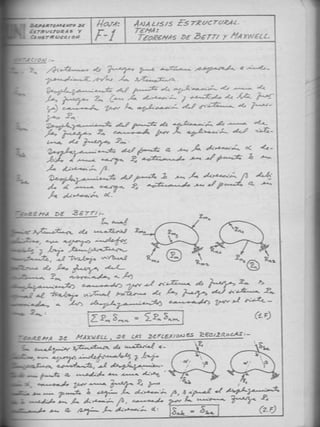 DEPARTAMENTO DE
ESTRUCTURAS Y
CONSTRUCCION
HOJA:
F-1
ANALISIS ESTRUCTURAL
TEMA:
TEOREMAS DE BETTI Y MAXWELL
NOTACION:-
Sistemas de fuerzas que actúan separada e inde-
pendiente sobre la estructura.
Desplazamiento del punto de aplicación de una de
las fuerzas Pm (en la dirección y sentido de
) causado por la aplicación del sistema de fuer-
zas
Desplazamiento del punto de aplicación de una de
las fuerzas causado por la aplicación del siste-
ma de fuerzas Pm.
Desplazamiento del punto a en la dirección α de-
bido a una carga P, actuando en el punto b en
la dirección β.
Desplazamiento del punto b en la dirección β debi-
do a una carga P, actuando en el punto a en
la dirección α.
TEOREMA DE BETTI:-
En cual
estructura de material
con apoyos indefor
y bajo temperatura
el trabajo virtual
externo de las fuerzas del
sistema Pm asociadas a los
desplazamientos causados por el sistema de fuerzas Pn es
igual al trabajo virtual externo de las fuerzas del sistema Pn
asociadas a los desplazamientos causados por el siste-
ma
Σ Pm δmn = Σ Pn δnm
(1.F)
TEOREMA DE MAXWELL, DE LAS DEFLEXIONES RECIPROCAS:-
En cualquier estructura de material e-
con apoyos indeformables y bajo
temperatura constante, el desplazamien-
to de un punto a medido en una direc
α, causado por una fuerza P, que
actúa en un punto b según la dirección β, es igual al desplazamiento
b medido en la dirección β, causado por la misma fuerza P,
actuando en a según la dirección α:
δab = δba
(2.F)